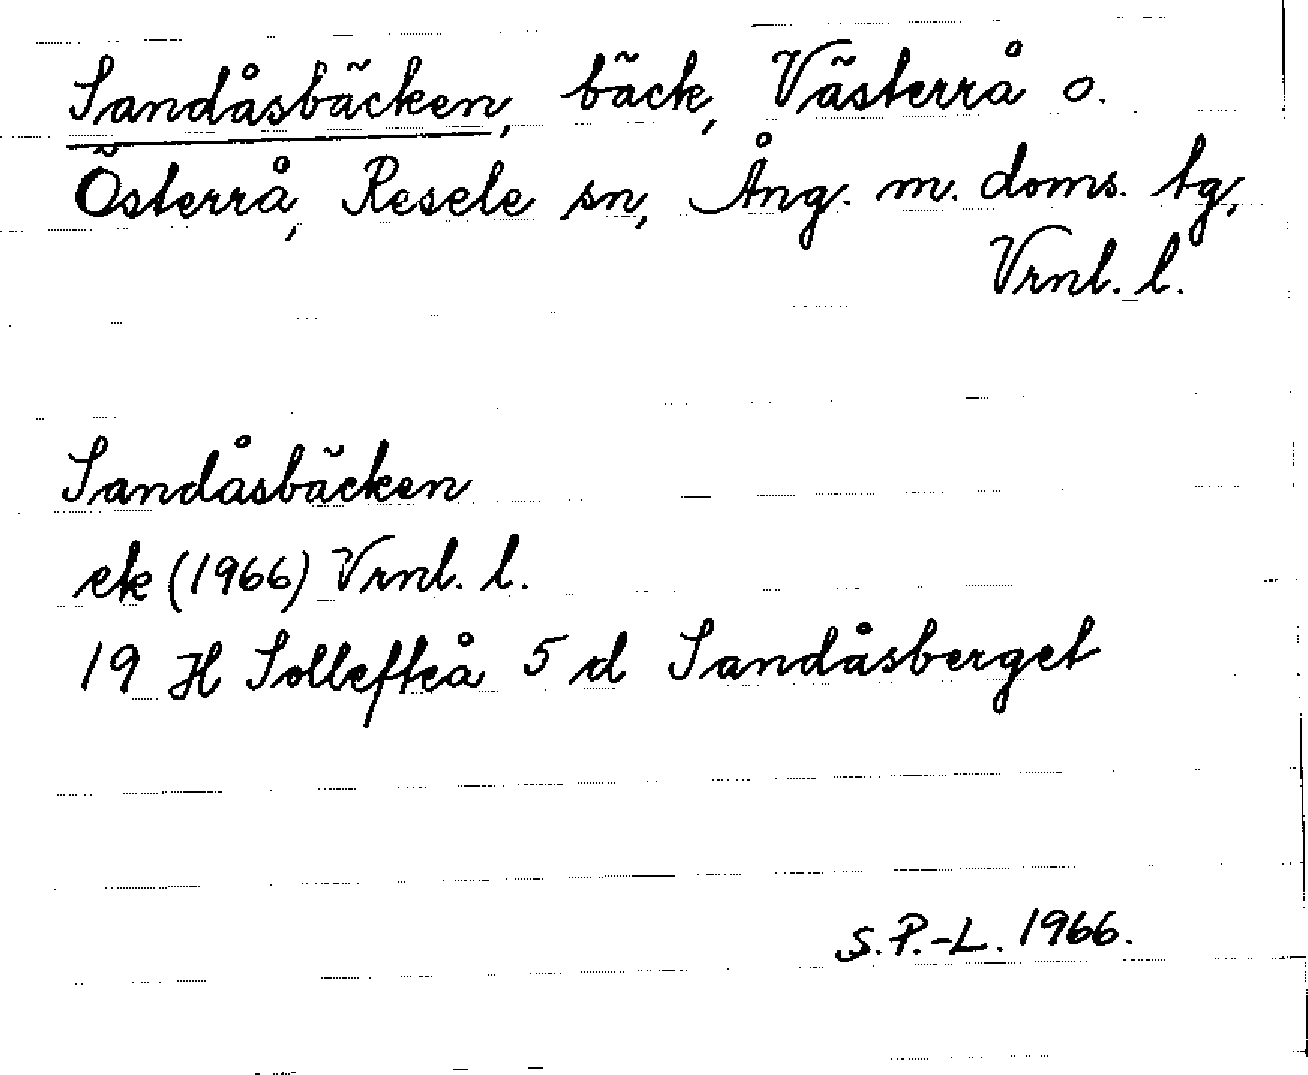 Sandåsbäcken, bäck, Västerrå o.
Österrå, Resele sn, Ång. m. doms. tg,
Vrnl. l.
Sandåsbäcken
ek (1966) Vrnl. l.
19 H Sollefteå 5 d Sandåsberget
S.P.-L. 1966.